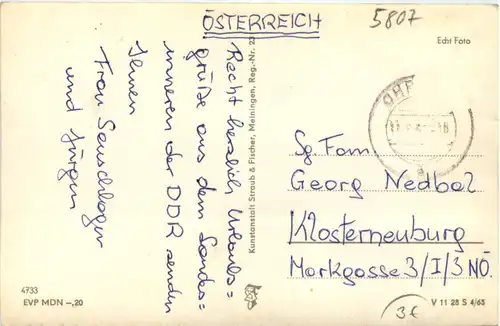 ÖSTERREICH
5807
Echt Foto
Recht herzlich Urlaubs=
grüße aus dem Landes=
inneren der DDR senden
Ihnen
Frau
und Jürgen
Kunstanstalt Straub & Fischer, Meiningen, Reg.-Nr. 23
OHR
Sg Fam.
Georg Nedbal
Klosterneuburg
Markgasse 3/I/3 NÖ.
4733
EVP MDN -,20
3€
V 11 28 S 4/65